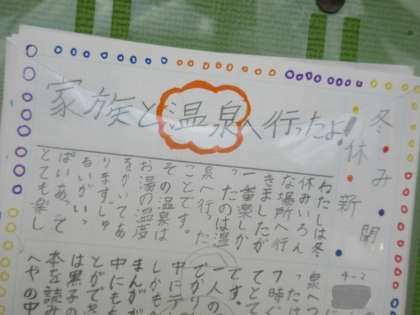 家族と温泉へ行ったよ!
冬休み新聞
4-2
わたしは冬
休みいろん
な場所へ行
きましたが
一番楽しか
ったのは温
泉へ行った
ことです。
その温泉は
お湯の温度
りますしゅ
るいがいっ
ぱいあって
とても楽し
泉へつ
です。
一人の
中にテ
しかも
まんが
中にも
とがで
は黒子の
本を読み
へやの中